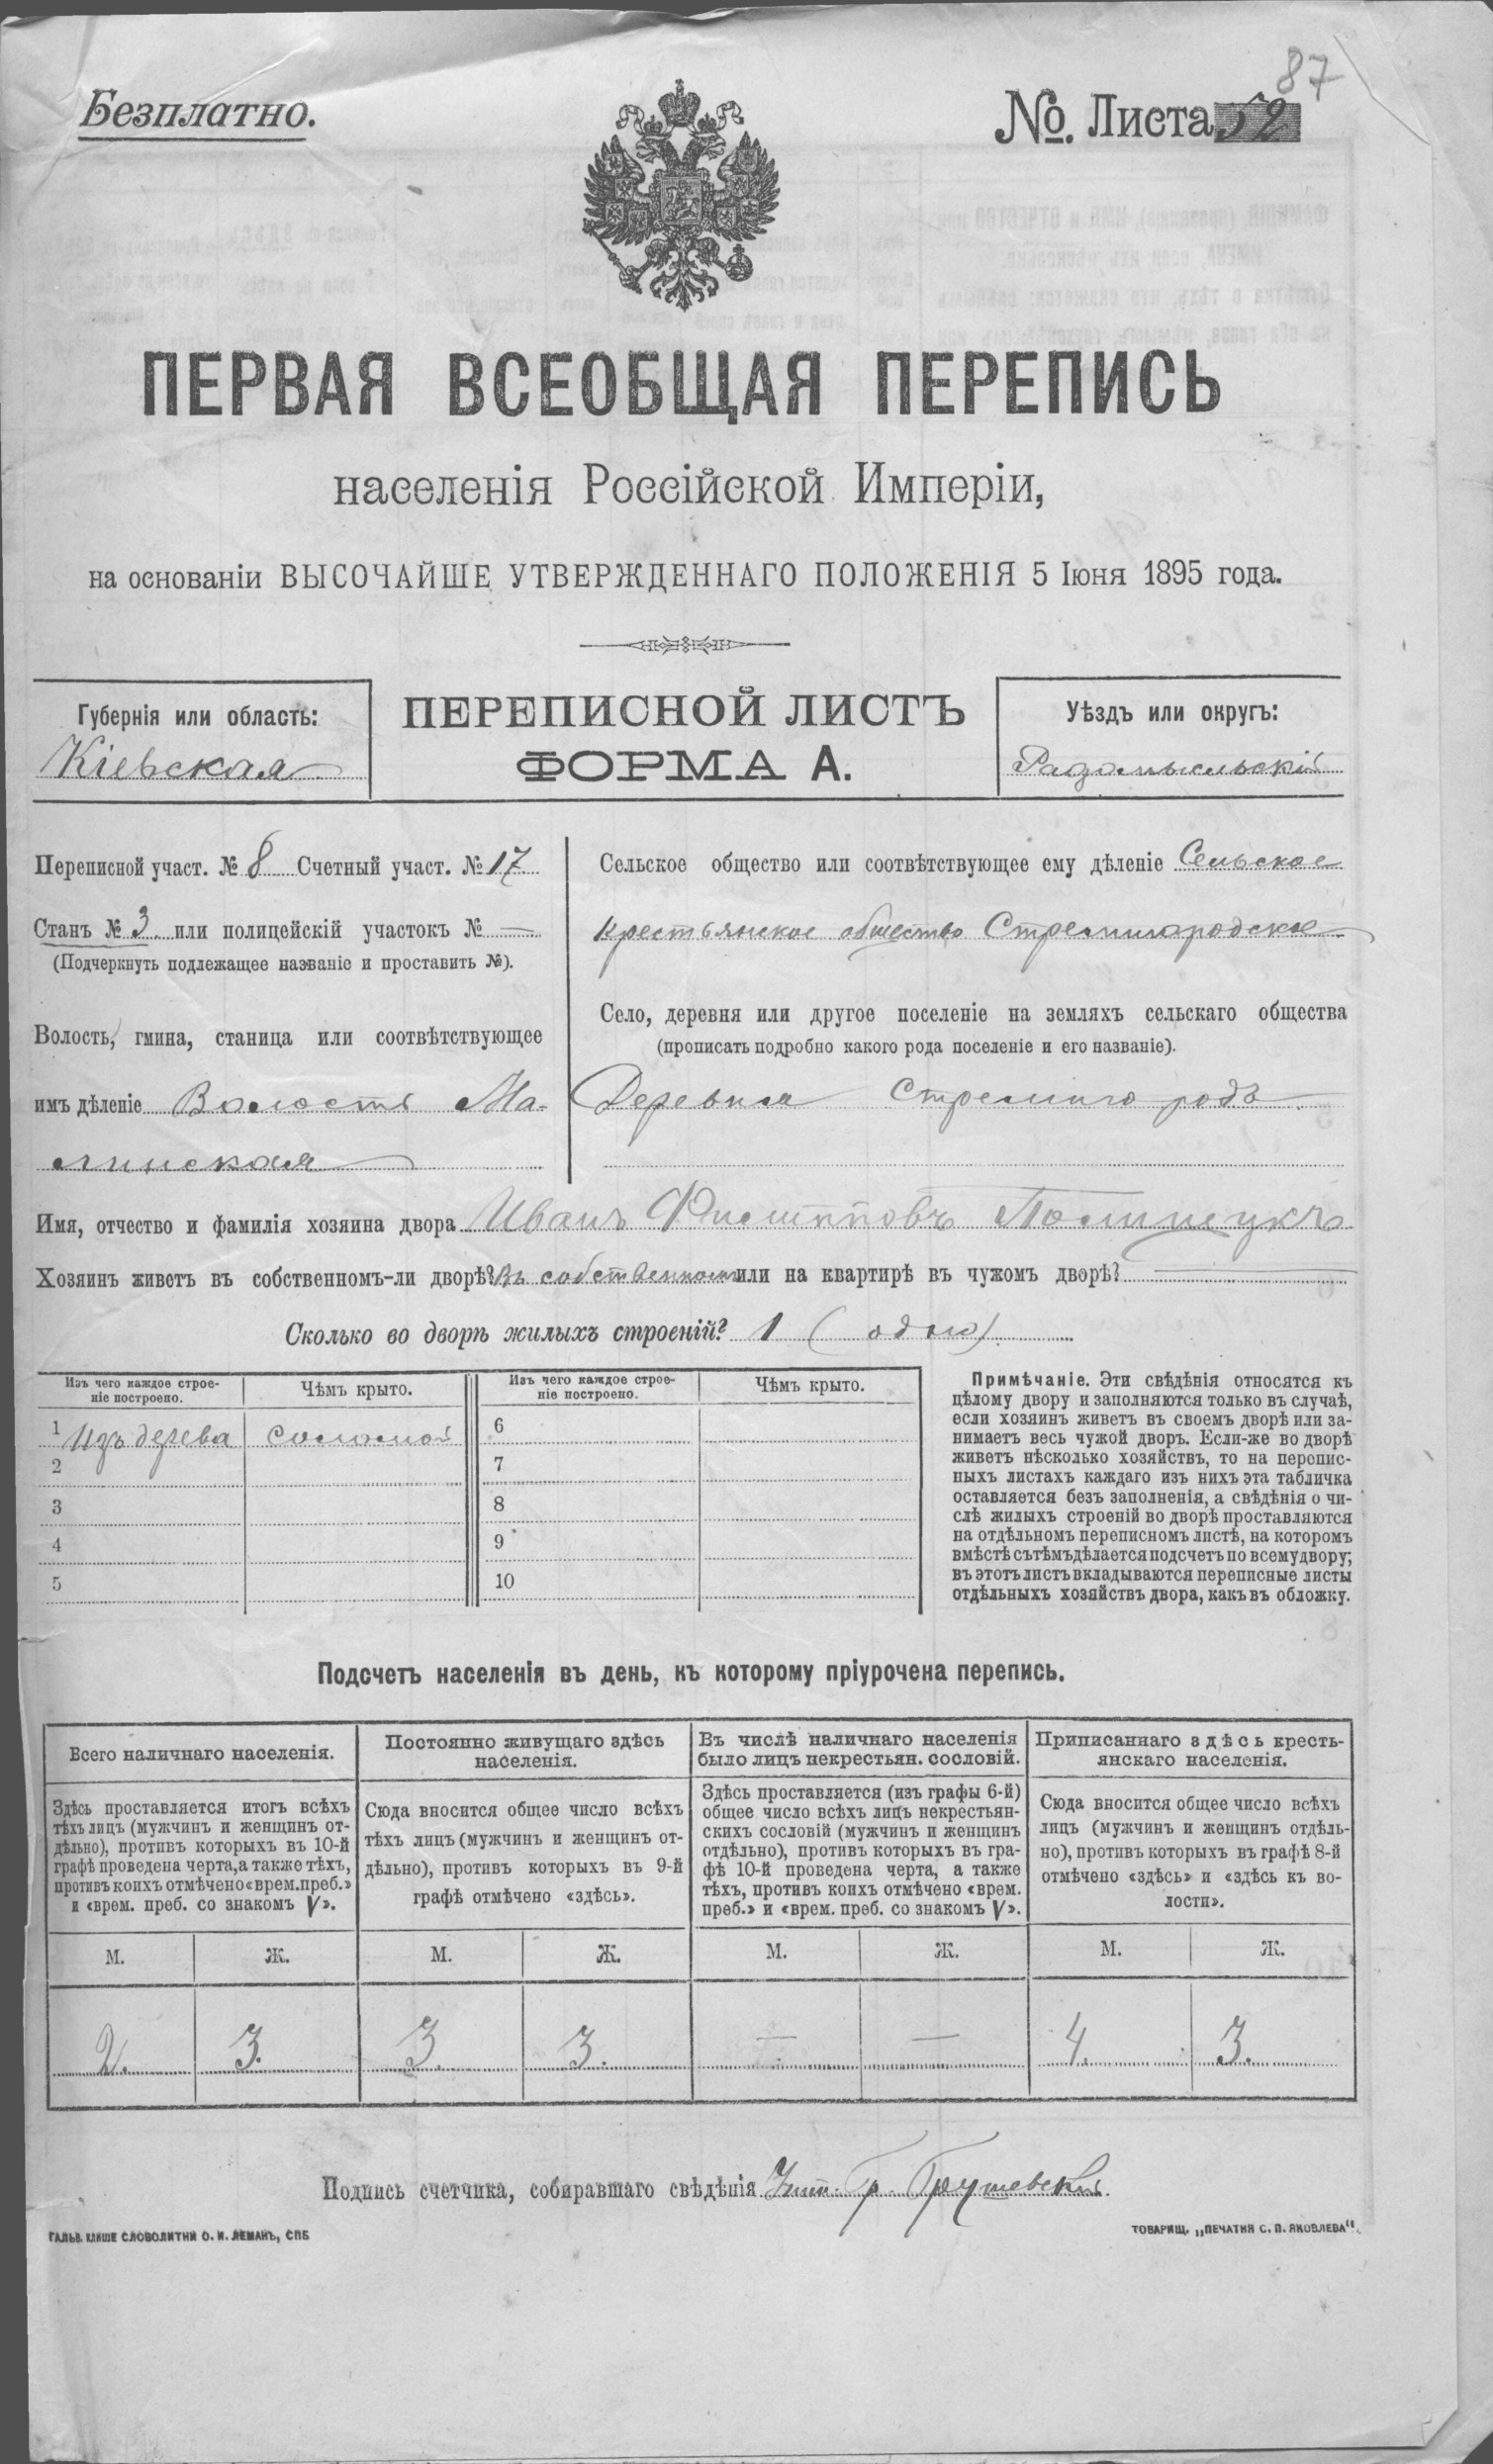 87
Безплатно.
№. Листа 52
ПЕРВАЯ ВСЕОБЩАЯ ПЕРЕПИСЬ
населенія Россійской Имперіи,
на основаніи ВЫСОЧАЙШЕ УТВЕРЖДЕННАГО ПОЛОЖЕНІЯ 5 Іюня 1895 года.
Губернія или область:
Кіевская
ПЕРЕПИСНОЙ ЛИСТЪ
ФОРМА А.
Уѣздъ или округъ:
Радомысльскій
Переписной участ. № 8 Счетный участ. № 17
Станъ № 3 или полицейскій участокъ № —
(Подчеркнуть подлежащее названіе и проставить №).
Волость, гмина, станица или соотвѣтствующее
имъ дѣленіе Волость Ма-
линская
Сельское общество или соотвѣтствующее ему дѣленіе Сельское
крестьянское общество Стремигородское
Село, деревня или другое поселеніе на земляхъ сельскаго общества
(прописать подробно какого рода поселеніе и его названіе).
Деревня Стремигородъ
Имя, отчество и фамилія хозяина двора Иванъ Филипповъ
Хозяинъ живетъ въ собственномъ-ли дворѣ? Въ собственномъ или на квартирѣ въ чужомъ дворѣ? —
Сколько во дворѣ жилыхъ строеній? 1 (одно)
Изъ чего каждое строе-
ніе построено.
Чѣмъ крыто.
Изъ чего каждое строе-
ніе построено.
Чѣмъ крыто.
1 Изъ дерева соломой 6
2 7
3 8
4 9
5 10
Примѣчаніе. Эти свѣдѣнія относятся къ
цѣлому двору и заполняются только въ случаѣ,
если хозяинъ живетъ въ своемъ дворѣ или за-
нимаетъ весь чужой дворъ. Если-же во дворѣ
живетъ нѣсколько хозяйствъ, то на перепис-
ныхъ листахъ каждаго изъ нихъ эта табличка
оставляется безъ заполненія, а свѣдѣнія о чи-
слѣ жилыхъ строеній во дворѣ проставляются
на отдѣльномъ переписномъ листѣ, на которомъ
вмѣстѣ съ тѣмъ дѣлается подсчетъ по всему двору;
въ этотъ листъ вкладываются переписные листы
отдѣльныхъ хозяйствъ двора, какъ въ обложку.
Подсчетъ населенія въ день, къ которому пріурочена перепись.
Всего наличнаго населенія.
Здѣсь проставляется итогъ всѣхъ
тѣхъ лицъ (мужчинъ и женщинъ от-
дѣльно), противъ которыхъ въ 10-й
графѣ проведена черта, а также тѣхъ,
противъ коихъ отмѣчено «врем. преб.»
и «врем. преб. со знакомъ V».
Постоянно живущаго здѣсь
населенія.
Сюда вносится общее число всѣхъ
тѣхъ лицъ (мужчинъ и женщинъ от-
дѣльно), противъ которыхъ въ 9-й
графѣ отмѣчено «здѣсь».
Въ числѣ наличнаго населенія
было лицъ некрестьян. сословій.
Здѣсь проставляется (изъ графы 6-й)
общее число всѣхъ лицъ некрестьян-
скихъ сословій (мужчинъ и женщинъ
отдѣльно), противъ которыхъ въ гра-
фѣ 10-й проведена черта, а также
тѣхъ, противъ коихъ отмѣчено «врем.
преб.» и «врем. преб. со знакомъ V».
Приписаннаго здѣсь кресть-
янскаго населенія.
Сюда вносится общее число всѣхъ
лицъ (мужчинъ и женщинъ отдѣль-
но), противъ которыхъ въ графѣ 8-й
отмѣчено «здѣсь» и «здѣсь къ во-
лости».
М. Ж. М. Ж. М. Ж. М. Ж.
2. 3. 3 3. — — 4. 3.
Подпись счетчика, собиравшаго свѣдѣнія Гр. Грушевскій
ГАЛЬВ. КЛИШЕ СЛОВОЛИТНИ О. И. ЛЕМАНЪ, СПБ
ТОВАРИЩ. „ПЕЧАТНЯ С. П. ЯКОВЛЕВА“.